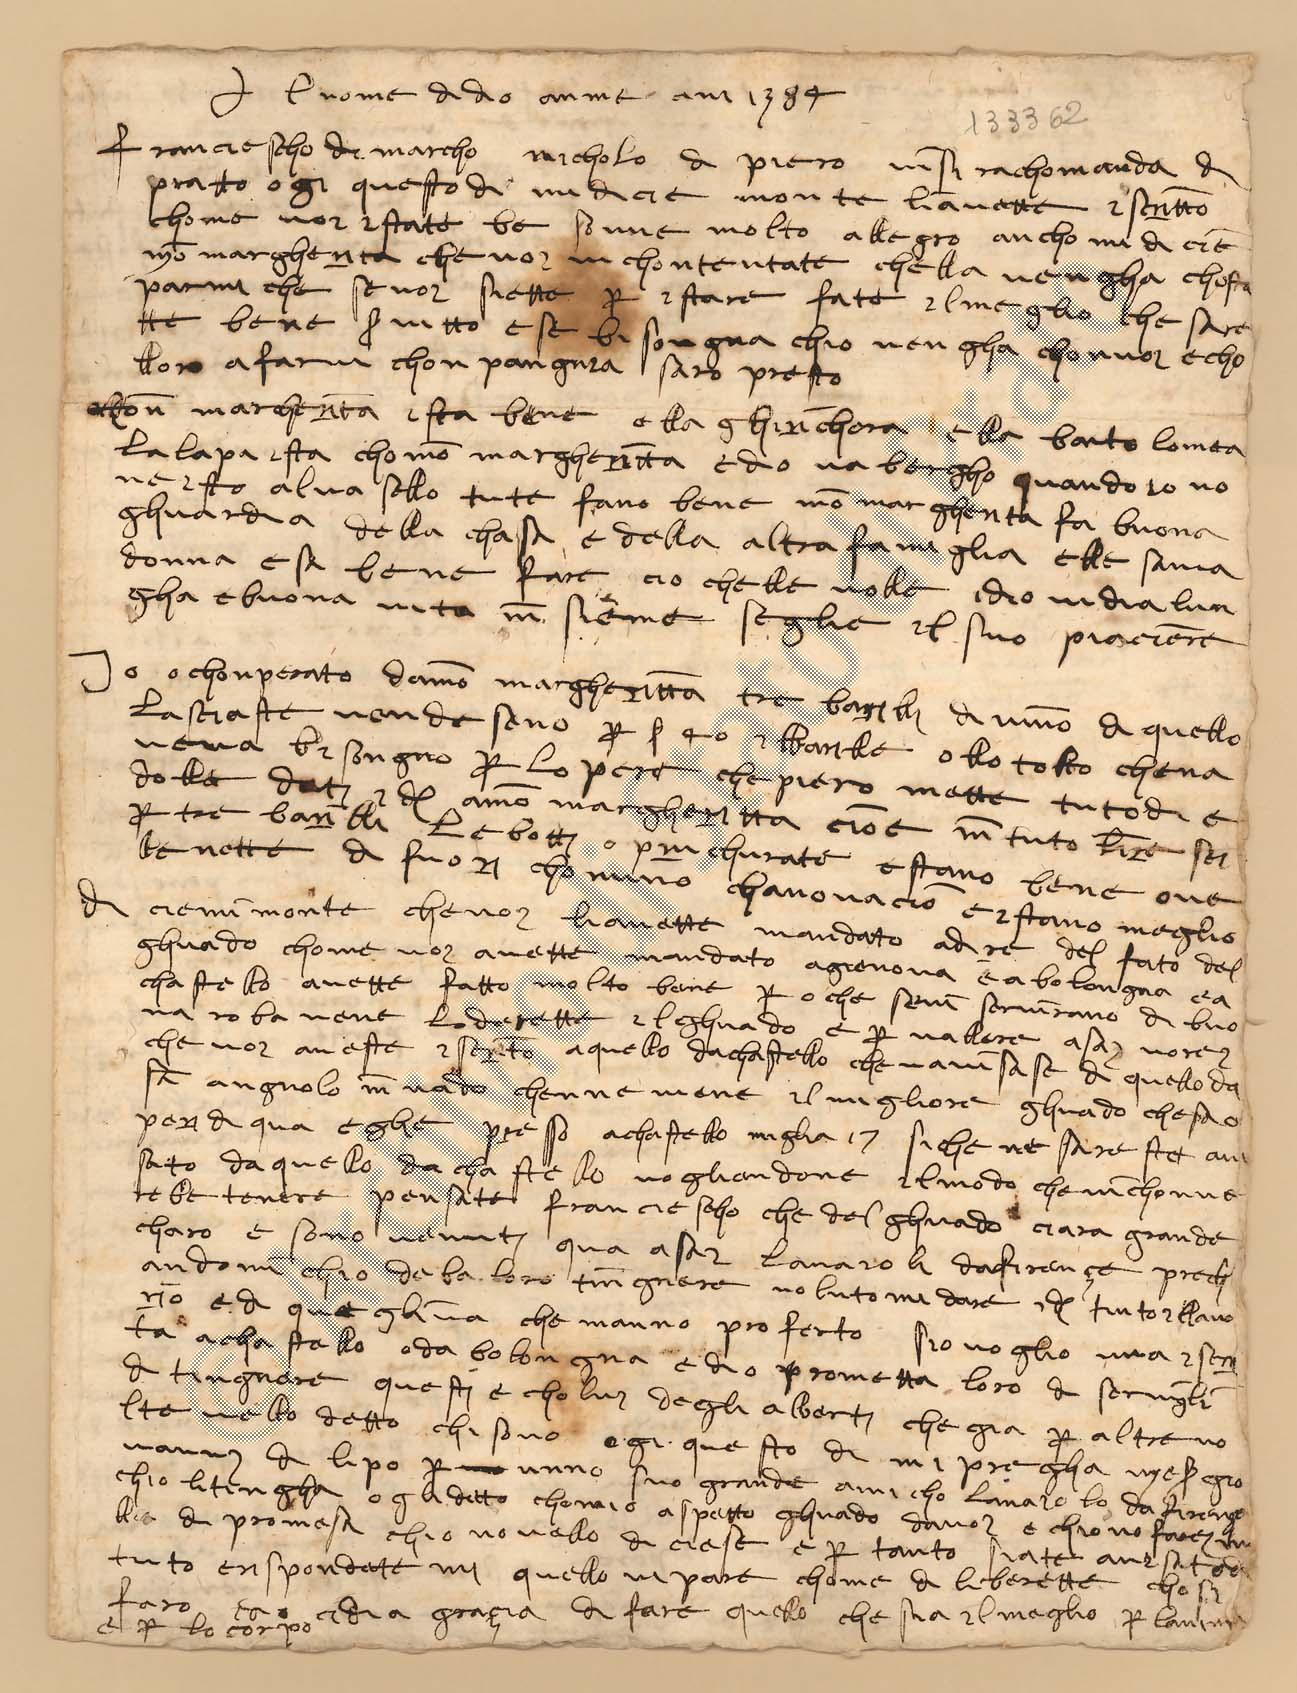 I l nome di dio amme ani 1384
133362
Franciescho di marcho nicholo di piero vi si rachomanda di
pratto ogi questo di mi dicie monte li avette iscritto
chome voi istate be sonne molto allegro ancho mi dicie
mõ margherita che voi vi chontentate chella vengha chosta
parmi che se voi siette per istare fate il meglio che sare
tte bene per tutto e se bisongna chio vengha chonvoi e cho
lloro a farvi chonpangnia saro presto
monã margherita ista bene ella ghirichora ella bartolomea
la lapa ista cho mõ margheritta ed io va bergho quando io no
ne isto al va sello tute fano bene mõ margherita fa buona
ghuardia della chasa e della altra famiglia elle savia
donna e sa bene fare cio chelle volle idio vi dia lun
gha e buona vita insieme segli e il suo piaciere
Io o chonperato da mõ margheritta tre barilli di vino di quello
lasciaste vendeseno per s 40 il barille ollo tolto che na
veva bisongno per lopere che piero mette tutodi e
dolle dati i d a mõ margheritta cioe in tuto lire sei
per tre barilli le botti o prochurate e stano bene ove
lle nette di fuori chomino chanovacio e istano meglio
di cienimonte che voi li avette mandato a dire del fato del
ghuado chome voi avette mandato a gienova e a bolongna e a
chastello avette fatto molto bene per o che servi servirano di buo
na roba vene loderette il ghuado e per vallere asai vorei
che voi aveste iscrito a quello da chastello che navisase di quello da
sã angnolo in vado chenne viene il migliore ghuado che sa o
peri di qua eghe presso a chastello miglia 17 siche ne sareste avi
sato da quello da chastello vogliendone il modo che vi chonve
rebe tenere pensate franciescho che del ghuado ciara grande
charo e sono venuti qua asai lanaroli da firençe pregh
andomi chio deba loro tingnere no luto mi dare i d tintorllano
rio e di quegli va che manno proferto sio voglio una iscri
ta a chastello o da bolongna ed io prometta loro di servigli
di tingnere questi e cholui degli alberti che gia per altre vo
lte vello detto chi sono ogi questo di mi pregha nyes gro
nanni di lipo per unno suo grande amicho lanaiolo da firençe
chio li tengha o gli detto chomio aspetto ghuado da voi e chio no farei niu
lla di promesa chio no vello diciese e per tanto siate avisato di
tuto e rispondete mi quello vi pare chome diliberette chosi
faro idio ci dia gracia di fare quello che sia il meglio per lanima
e per lo corpo